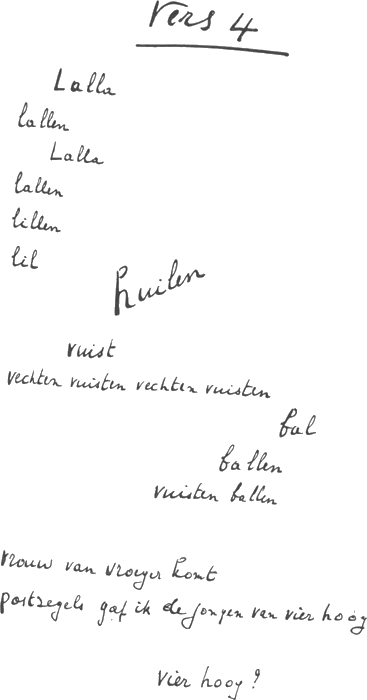 Vers 4
Lalla
lallen
Lalla
lallen
lillen
lil
huilen
vuist
vechten vuisten vechten vuisten
bal
ballen
vuisten ballen
vrouw van vroeger komt
postzegels gaf ik de jongen van vier hoog
vier hoog?